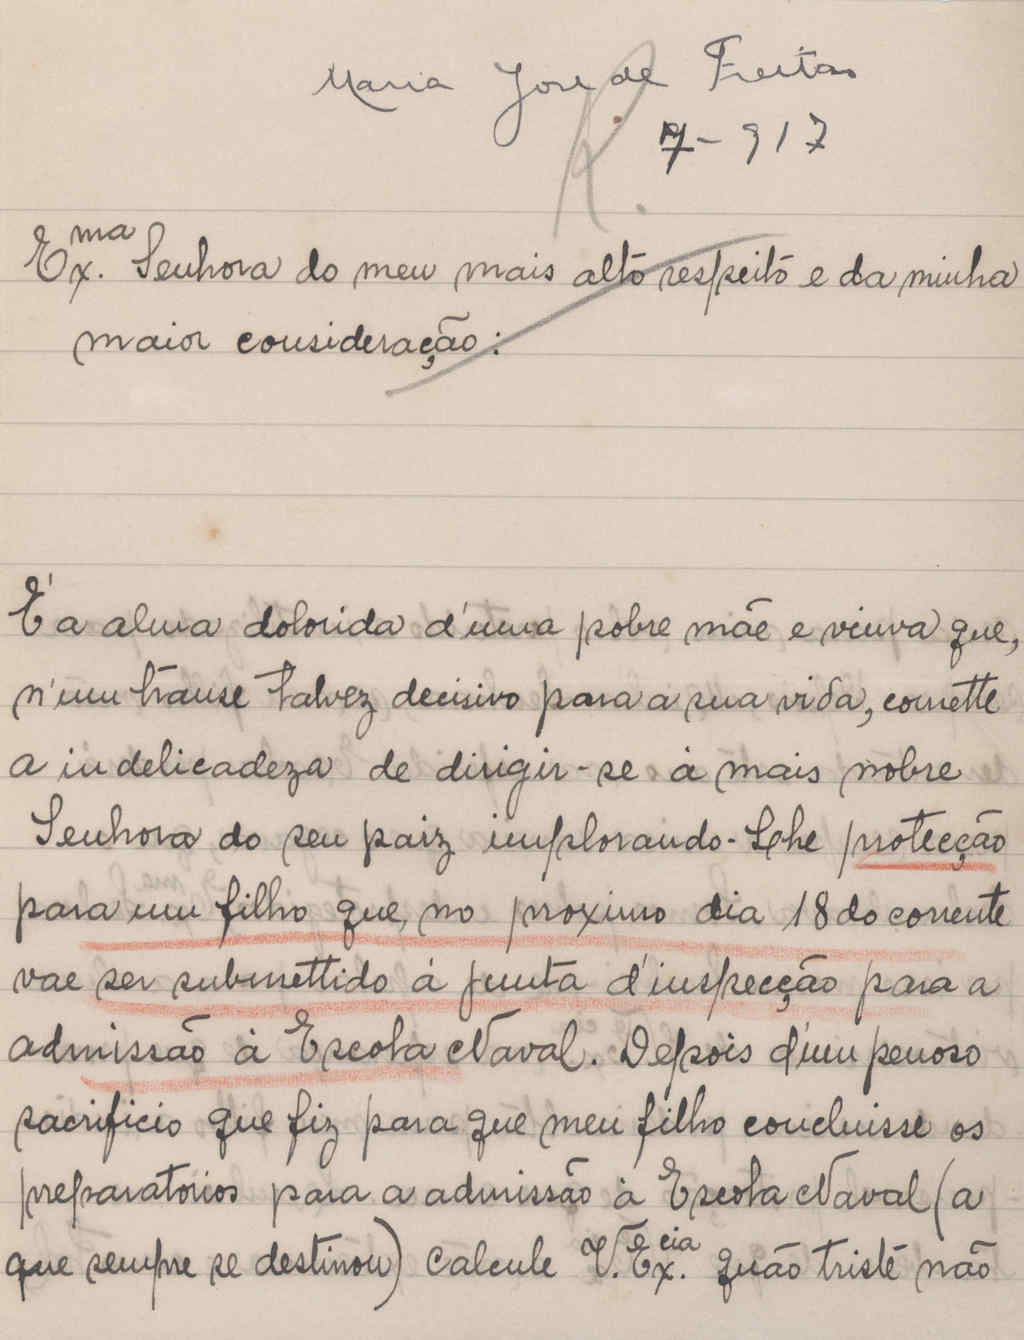 Maria José de Freitas
R.
7-917
Ex.ma Senhora do meu mais alto respeito e da minha
maior consideração:
É a alma dolorida d'uma pobre mãe e viuva que,
n'um transe talvez decisivo para a sua vida, comette
a indelicadeza de dirigir-se á mais nobre
Senhora do seu paiz implorando-Lhe protecção
para um filho que, no proximo dia 18 do corrente
vae ser submettido á junta d'inspecção para a
admissão à Escola Naval. Depois d'um penoso
sacrificio que fiz para que meu filho concluisse os
preparatorios para a admissão à Escola Naval (a
que sempre se destinou) calcule V. Ex.cia quão triste não